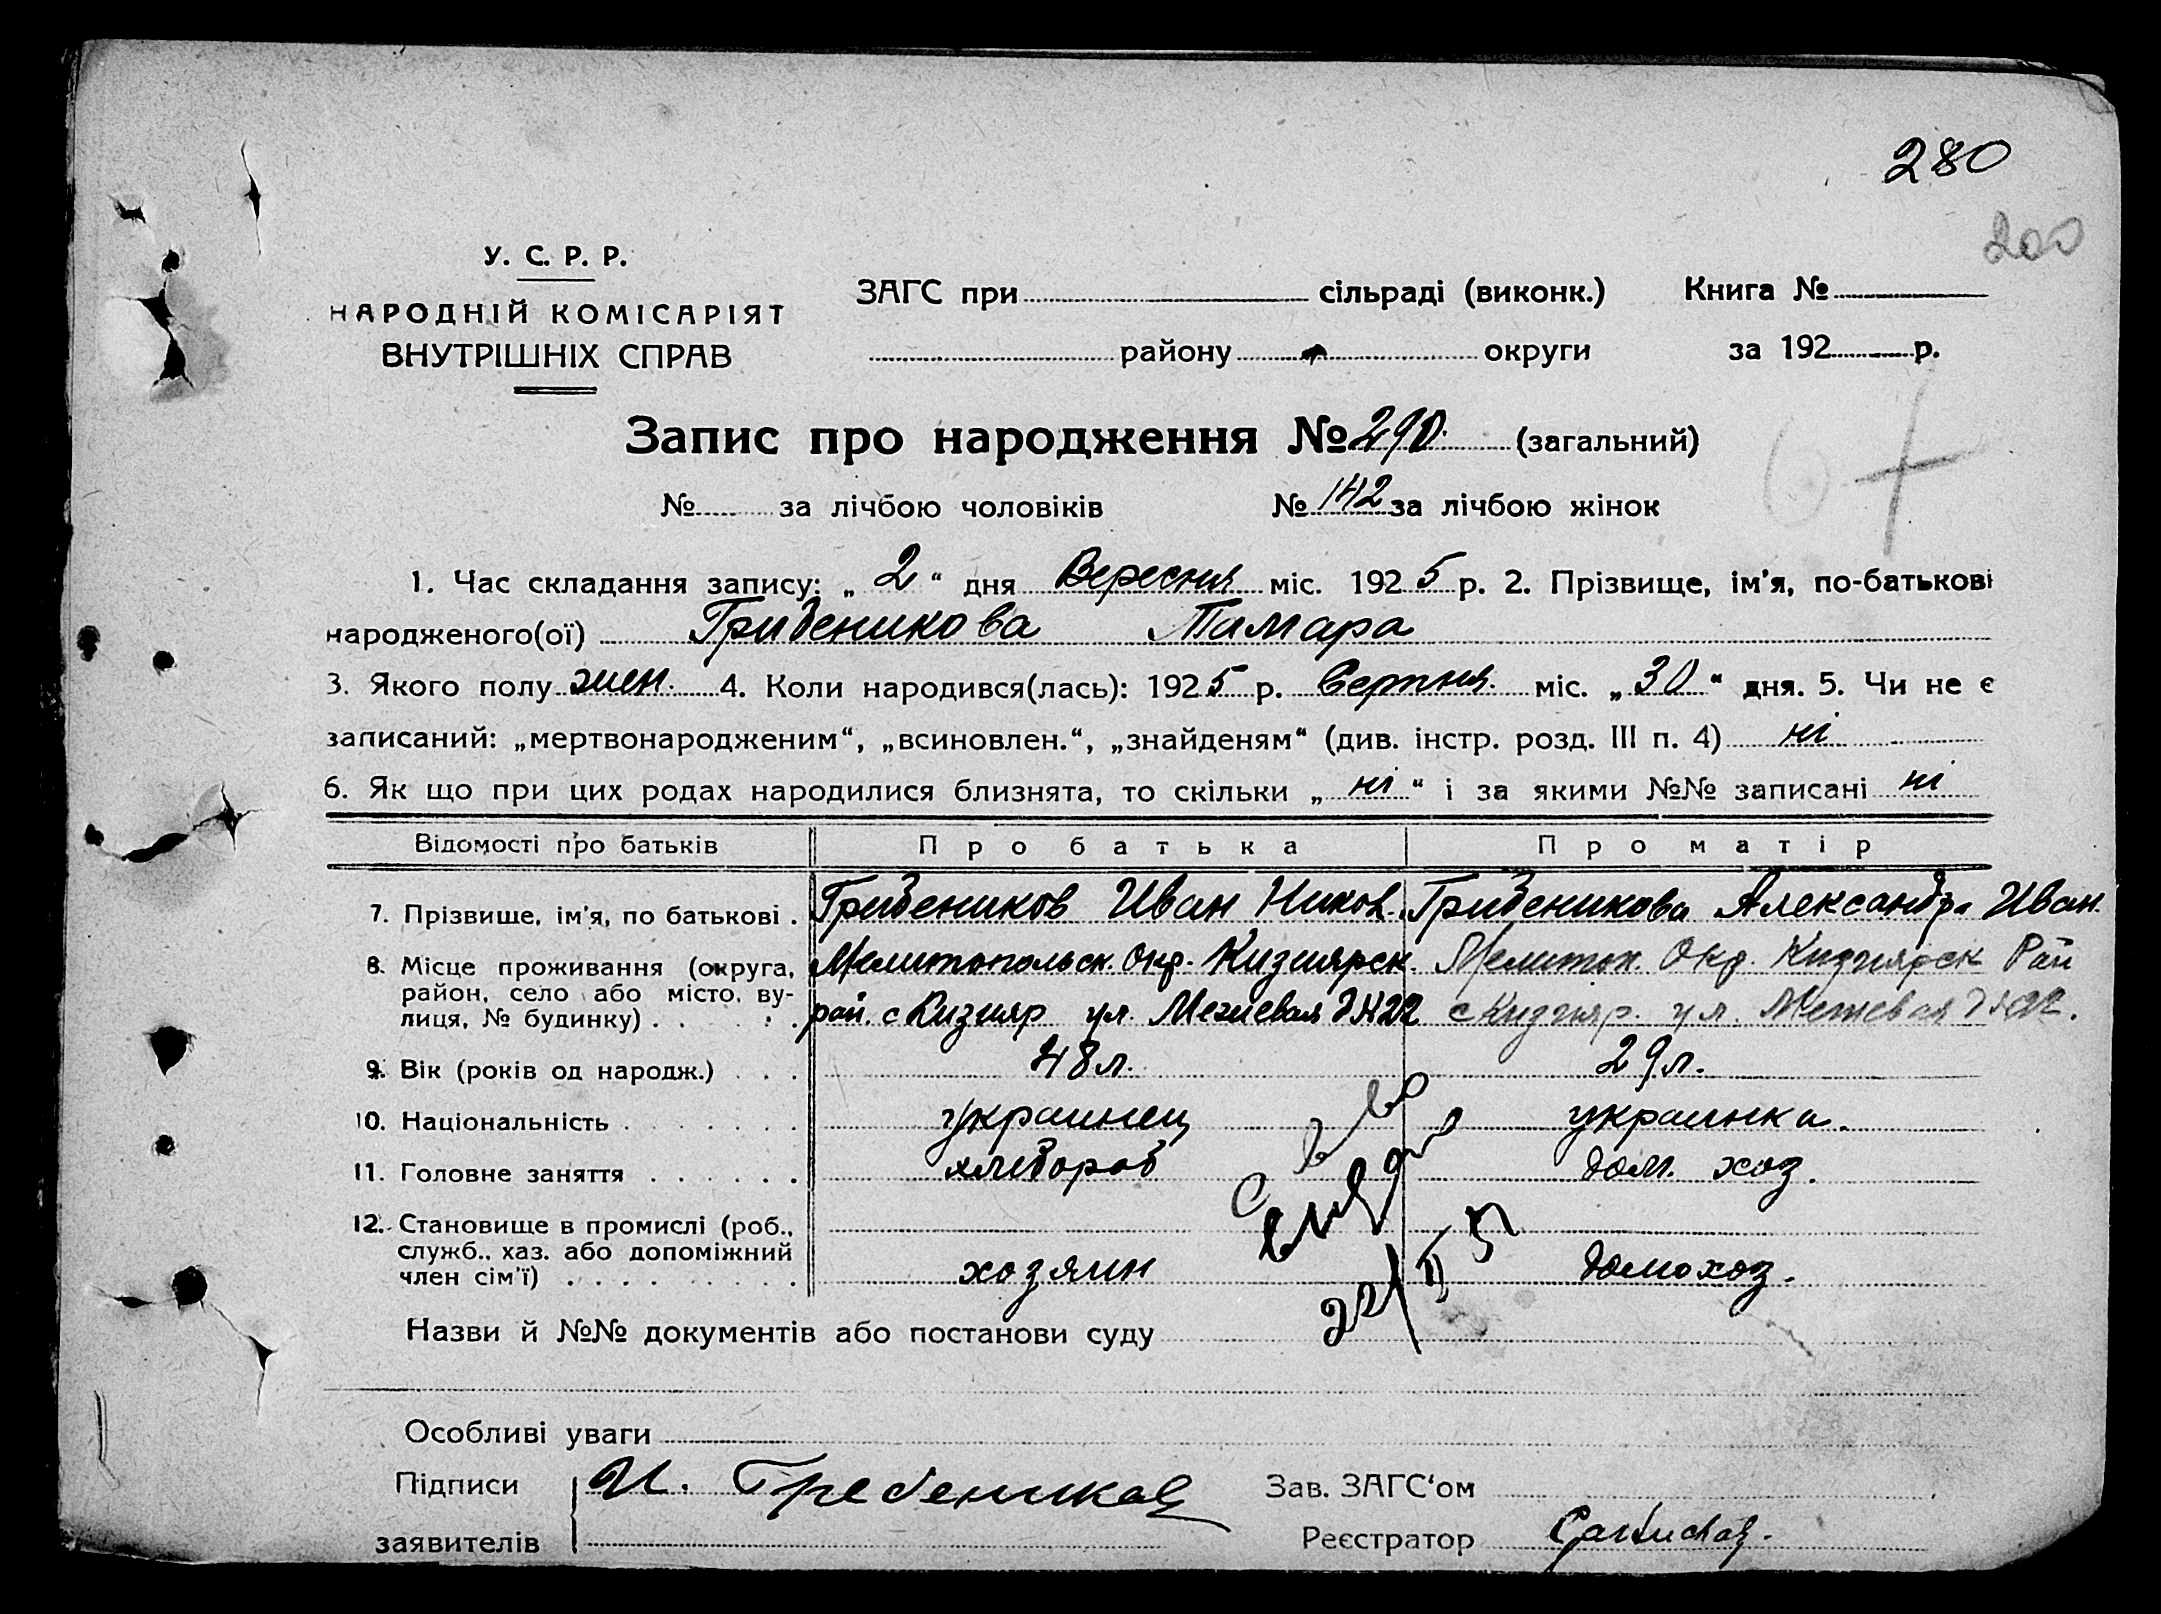 280
200
У. С. Р. Р.
НАРОДНІЙ КОМІСАРІЯТ
ВНУТРІШНІХ СПРАВ
ЗАГС при сільраді (виконк.) Книга №
району округи за 192 р.
Запис про народження № 290 (загальний)
№ за лічбою чоловіків № 142 за лічбою жінок
1. Час складання запису: „ 2 “ дня Вересня міс. 1925 р. 2. Прізвище, ім'я, по-батькові
народженого(ої) Грибеникова Тамара
3. Якого полу жен. 4. Коли народився(лась): 1925 р. Серпня міс. „ 30 “ дня. 5. Чи не є
записаний: „мертвонародженим“, „всиновлен.“, „знайденям“ (див. інстр. розд. III п. 4) ні
6. Як що при цих родах народилися близнята, то скільки „ ні “ і за якими №№ записані ні
Відомості про батьків Про батька Про матір
7. Прізвище, ім'я, по батькові . Грибеников Иван Никол. Грибеникова Александра Иван.
8. Місце проживання (округа, Мелитопольск. Окр. Кизиярск Мелитоп. Окр. Кизиярск Рай
район, село або місто, ву-
лиця, № будинку) . . . . . рай. с Кизияр ул. Межевая д №22 с Кизияр. ул. Межевая д №22.
9. Вік (років од народж.) . . . 48 л. 29 л.
10. Національність . . . . . . . украинец украинка.
11. Головне заняття . . . . . . хлебороб дом. хоз.
12. Становище в промислі (роб.,
служб., хаз. або допоміжний
член сім'ї) . . . . . . . . . хозяин домохоз.
22/II 51
Назви й №№ документів або постанови суду
Особливі уваги
Підписи И. Гребеников Зав. ЗАГС‘ом
заявителів Реєстратор